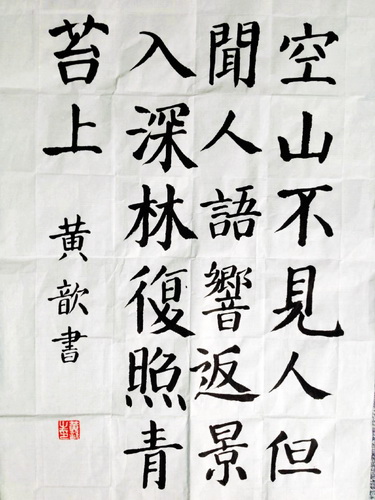 空山不見人但
聞人語響返景
入深林復照青
苔上
黄歆書